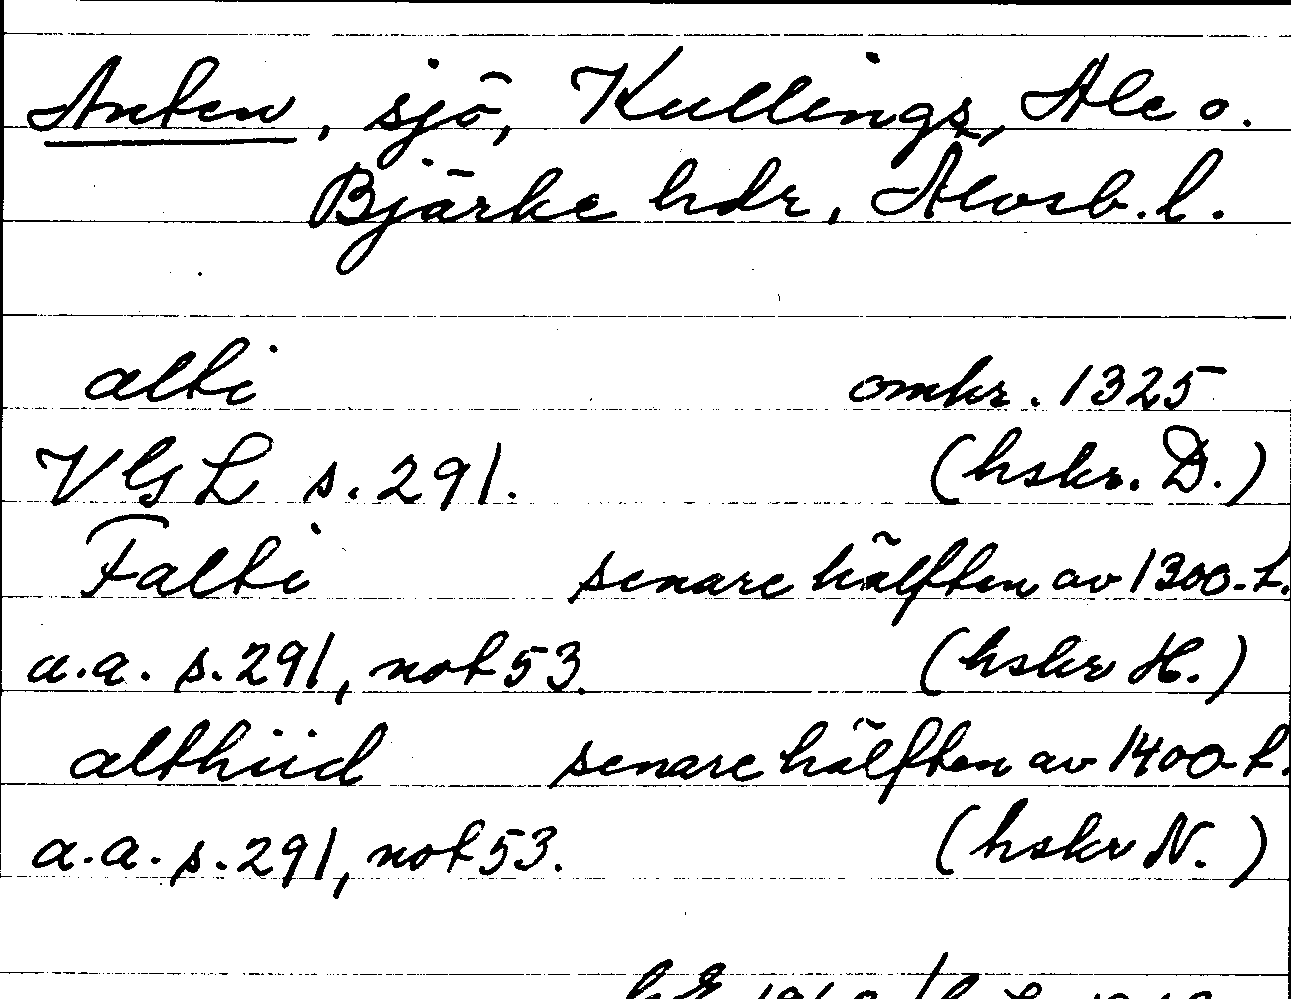 Anten, sjö, Kullings, Ale o.
Bjärke hdr, Älvsb. l.
alti omkr. 1325
VGL s. 291. (hskr. D.)
Falti senare hälften av 1300-t.
a.a. s. 291, not 53. (hskr H.)
althiid senare hälften av 1400-t.
a.a. s. 291, not 53. (hskr N.)